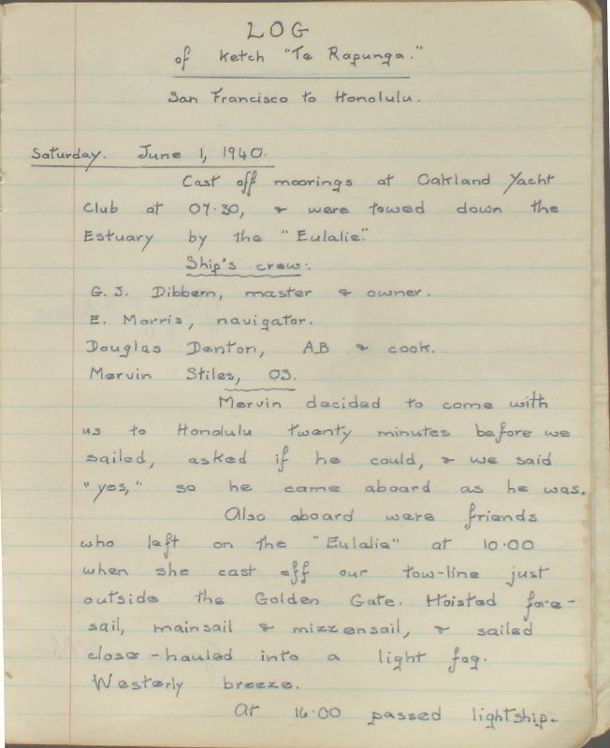 LOG
of ketch "Te Rapunga."
San Francisco to Honolulu.
Saturday. June 1, 1940.
Cast off moorings at Oakland Yacht
Club at 07.30, & were towed down the
Estuary by the "Eulalie".
Ship's crew:
G. J. Dibbern, master & owner.
E. Morris, navigator.
Douglas Denton, AB & cook.
Mervin Stiles, OS.
Mervin decided to come with
us to Honolulu twenty minutes before we
sailed, asked if he could, & we said
"yes," so he came aboard as he was.
Also aboard were friends
who left on the "Eulalie" at 10.00
when she cast off our tow-line just
outside the Golden Gate. Hoisted fore-
sail, mainsail & mizzensail, & sailed
close-hauled into a light fog.
Westerly breeze.
At 14.00 passed lightship.